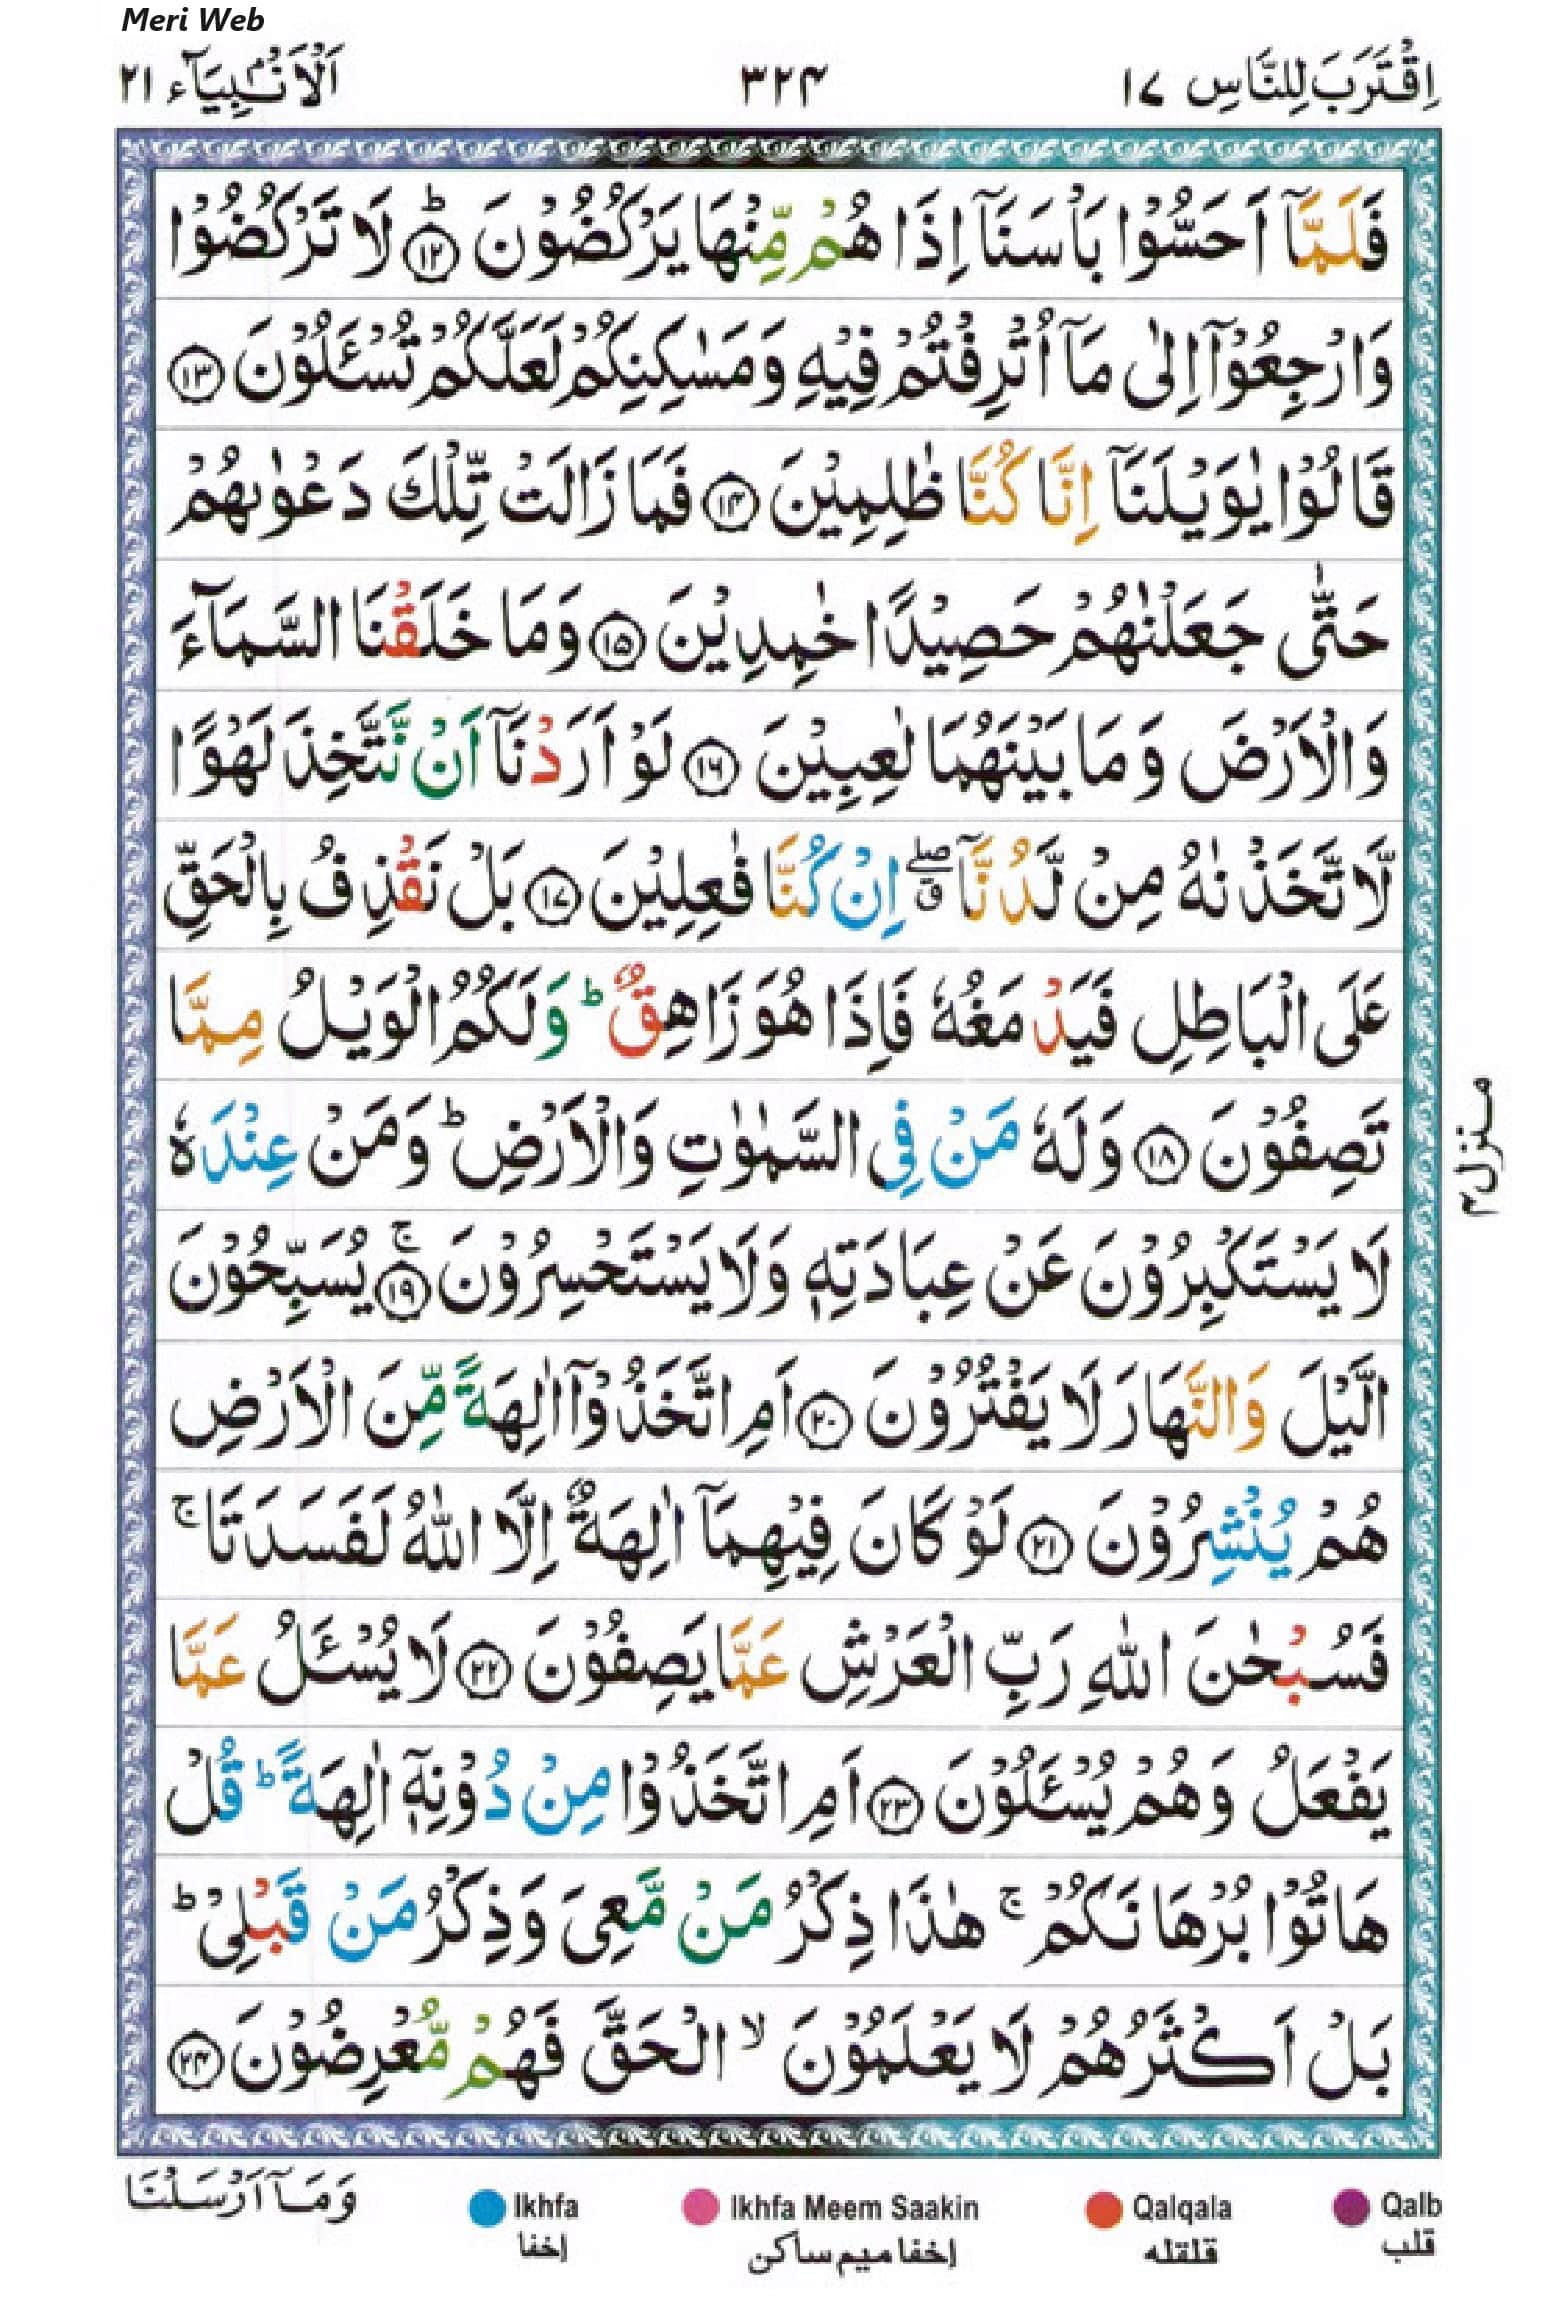 Meri Web
اِقْتَرَبَ لِلنَّاسِ ١٧
٣٢٤
اَلْاَنْۢبِيَآء ٢١
فَلَمَّآ اَحَسُّوْا بَاْسَنَآ اِذَا هُمْ مِّنْهَا يَرْكُضُوْنَ ؕ‏﴿۱۲﴾ لَا تَرْكُضُوْا
وَارْجِعُوْۤا اِلٰى مَآ اُتْرِفْتُمْ فِيْهِ وَمَسٰكِنِكُمْ لَعَلَّكُمْ تُسْـَٔلُوْنَ ﴿۱۳﴾
قَالُوْا يٰوَيْلَنَآ اِنَّا كُنَّا ظٰلِمِيْنَ ﴿۱۴﴾ فَمَا زَالَتْ تِّلْكَ دَعْوٰىهُمْ
حَتّٰى جَعَلْنٰهُمْ حَصِيْدًا خٰمِدِيْنَ ﴿۱۵﴾ وَمَا خَلَقْنَا السَّمَآءَ
وَالْاَرْضَ وَمَا بَيْنَهُمَا لٰعِبِيْنَ ﴿۱۶﴾ لَوْ اَرَدْنَآ اَنْ نَّتَّخِذَ لَهْوًا
لَّاتَّخَذْنٰهُ مِنْ لَّدُنَّآ ۖۗ اِنْ كُنَّا فٰعِلِيْنَ ﴿۱۷﴾ بَلْ نَقْذِفُ بِالْحَقِّ
عَلَى الْبَاطِلِ فَيَدْمَغُهٗ فَاِذَا هُوَ زَاهِقٌ ؕ وَلَكُمُ الْوَيْلُ مِمَّا
تَصِفُوْنَ ﴿۱۸﴾ وَلَهٗ مَنْ فِى السَّمٰوٰتِ وَالْاَرْضِ ؕ وَمَنْ عِنْدَهٗ
لَا يَسْتَكْبِرُوْنَ عَنْ عِبَادَتِهٖ وَلَا يَسْتَحْسِرُوْنَ ۚ‏﴿۱۹﴾ يُسَبِّحُوْنَ
الَّيْلَ وَالنَّهَارَ لَا يَفْتُرُوْنَ ﴿۲۰﴾ اَمِ اتَّخَذُوْۤا اٰلِهَةً مِّنَ الْاَرْضِ
هُمْ يُنْشِرُوْنَ ﴿۲۱﴾ لَوْ كَانَ فِيْهِمَآ اٰلِهَةٌ اِلَّا اللّٰهُ لَفَسَدَتَا ۚ
فَسُبْحٰنَ اللّٰهِ رَبِّ الْعَرْشِ عَمَّا يَصِفُوْنَ ﴿۲۲﴾ لَا يُسْـَٔلُ عَمَّا
يَفْعَلُ وَهُمْ يُسْـَٔلُوْنَ ﴿۲۳﴾ اَمِ اتَّخَذُوْا مِنْ دُوْنِهٖٓ اٰلِهَةً ؕ قُلْ
هَاتُوْا بُرْهَانَكُمْ ۚ هٰذَا ذِكْرُ مَنْ مَّعِىَ وَذِكْرُ مَنْ قَبْلِىْ ؕ
بَلْ اَكْثَرُهُمْ لَا يَعْلَمُوْنَ ۙ الْحَقَّ فَهُمْ مُّعْرِضُوْنَ ﴿۲۴﴾
منزل۴
وَمَآ اَرْسَلْنَا
Ikhfa Ikhfa Meem Saakin Qalqala Qalb
اخفا اخفا میم ساکن قلقلہ قلب